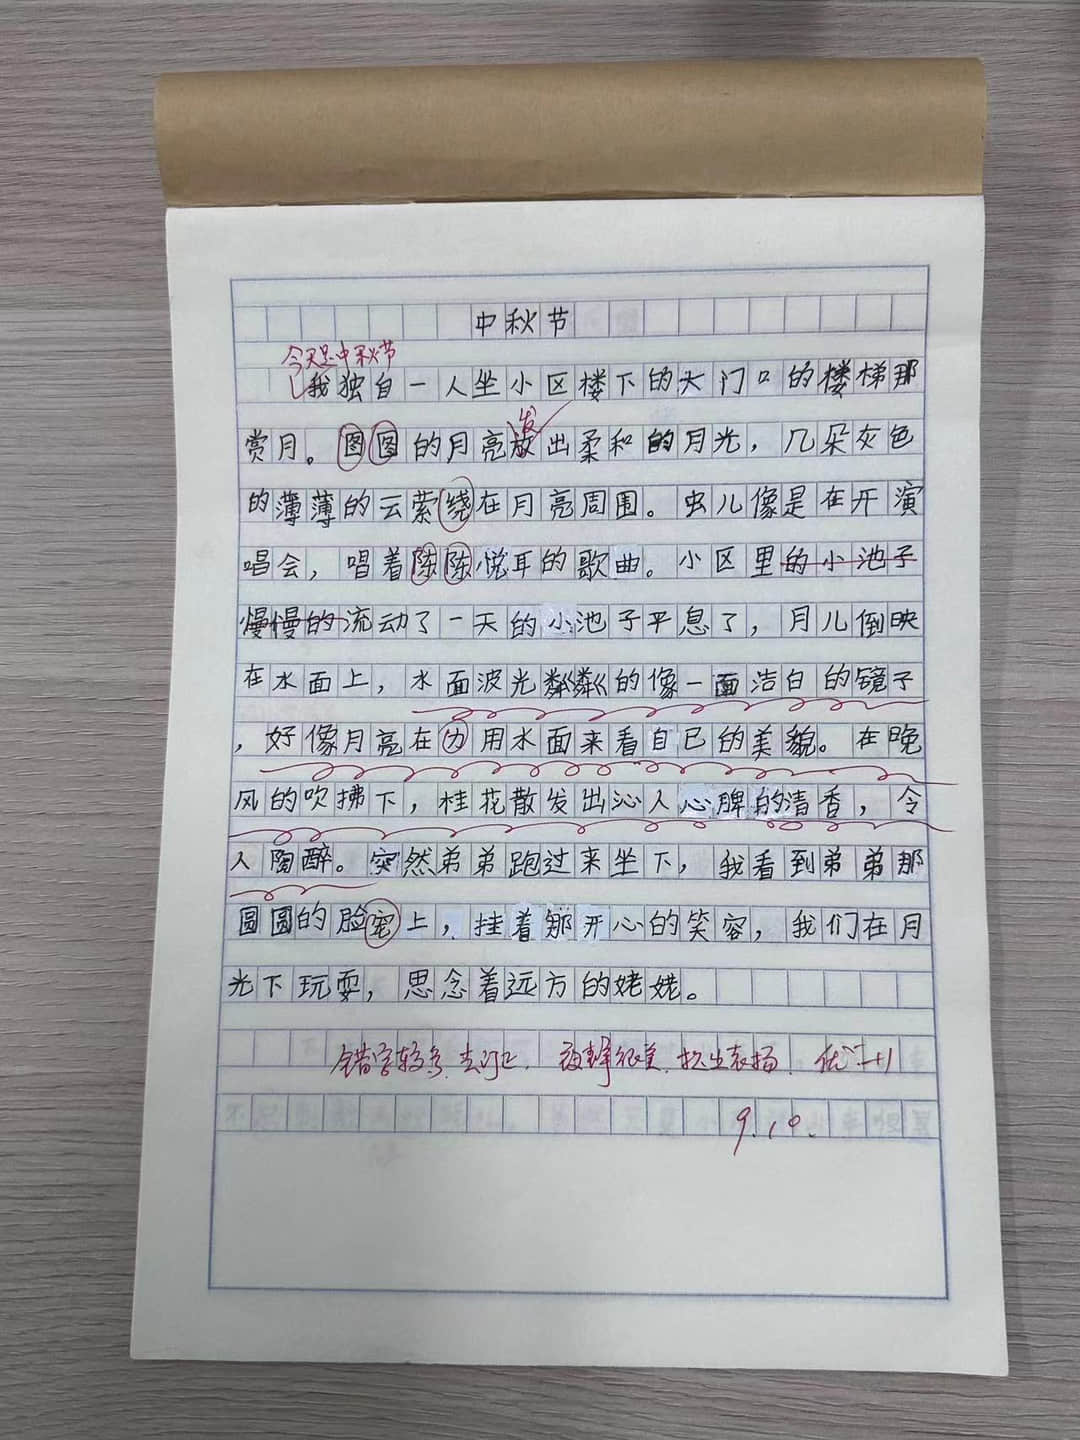 中秋节
今天是中秋节
我独自一人坐小区楼下的大门口的楼梯那
发
赏月。图图的月亮放出柔和的月光，几朵灰色
的薄薄的云萦绕在月亮周围。虫儿像是在开演
唱会，唱着陈陈悦耳的歌曲。小区里的小池子
慢慢的流动了一天的小池子平息了，月儿倒映
在水面上，水面波光粼粼的像一面洁白的镜子
，好像月亮在力用水面来看自己的美貌。在晚
风的吹拂下，桂花散发出沁人心脾的清香，令
人陶醉。突然弟弟跑过来坐下，我看到弟弟那
圆圆的脸宠上，挂着那开心的笑容，我们在月
光下玩耍，思念着远方的姥姥。
错字较多，去订正，很美，提出表扬，优
9.10.